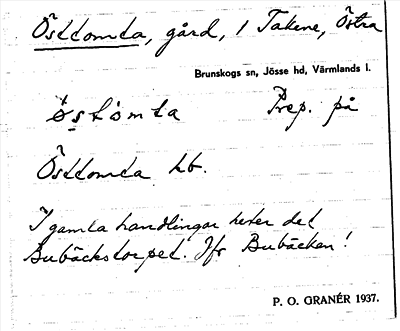 Östtomta, gård, i Takene, Östra
Brunskogs sn, Jösse hd, Värmlands l.
östòmta Prep. på
Östtomta kb.
I gamla handlingar heter det
Bubäckstorpet. Jfr Bubäcken!
P. O. GRANÉR 1937.